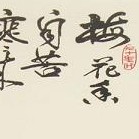 梅花香
自苦
寒来